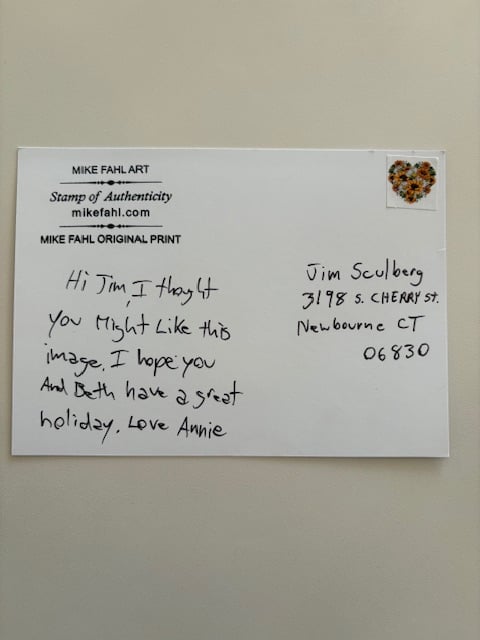 MIKE FAHL ART
Stamp of Authenticity
mikefahl.com
MIKE FAHL ORIGINAL PRINT
Hi Jim, I thoght
you Might Like this
image, I hope you
And Beth have a great
holiday. Love Annie
Jim Sculberg
3198 S. CHERRY ST.
Newbourne CT
06830